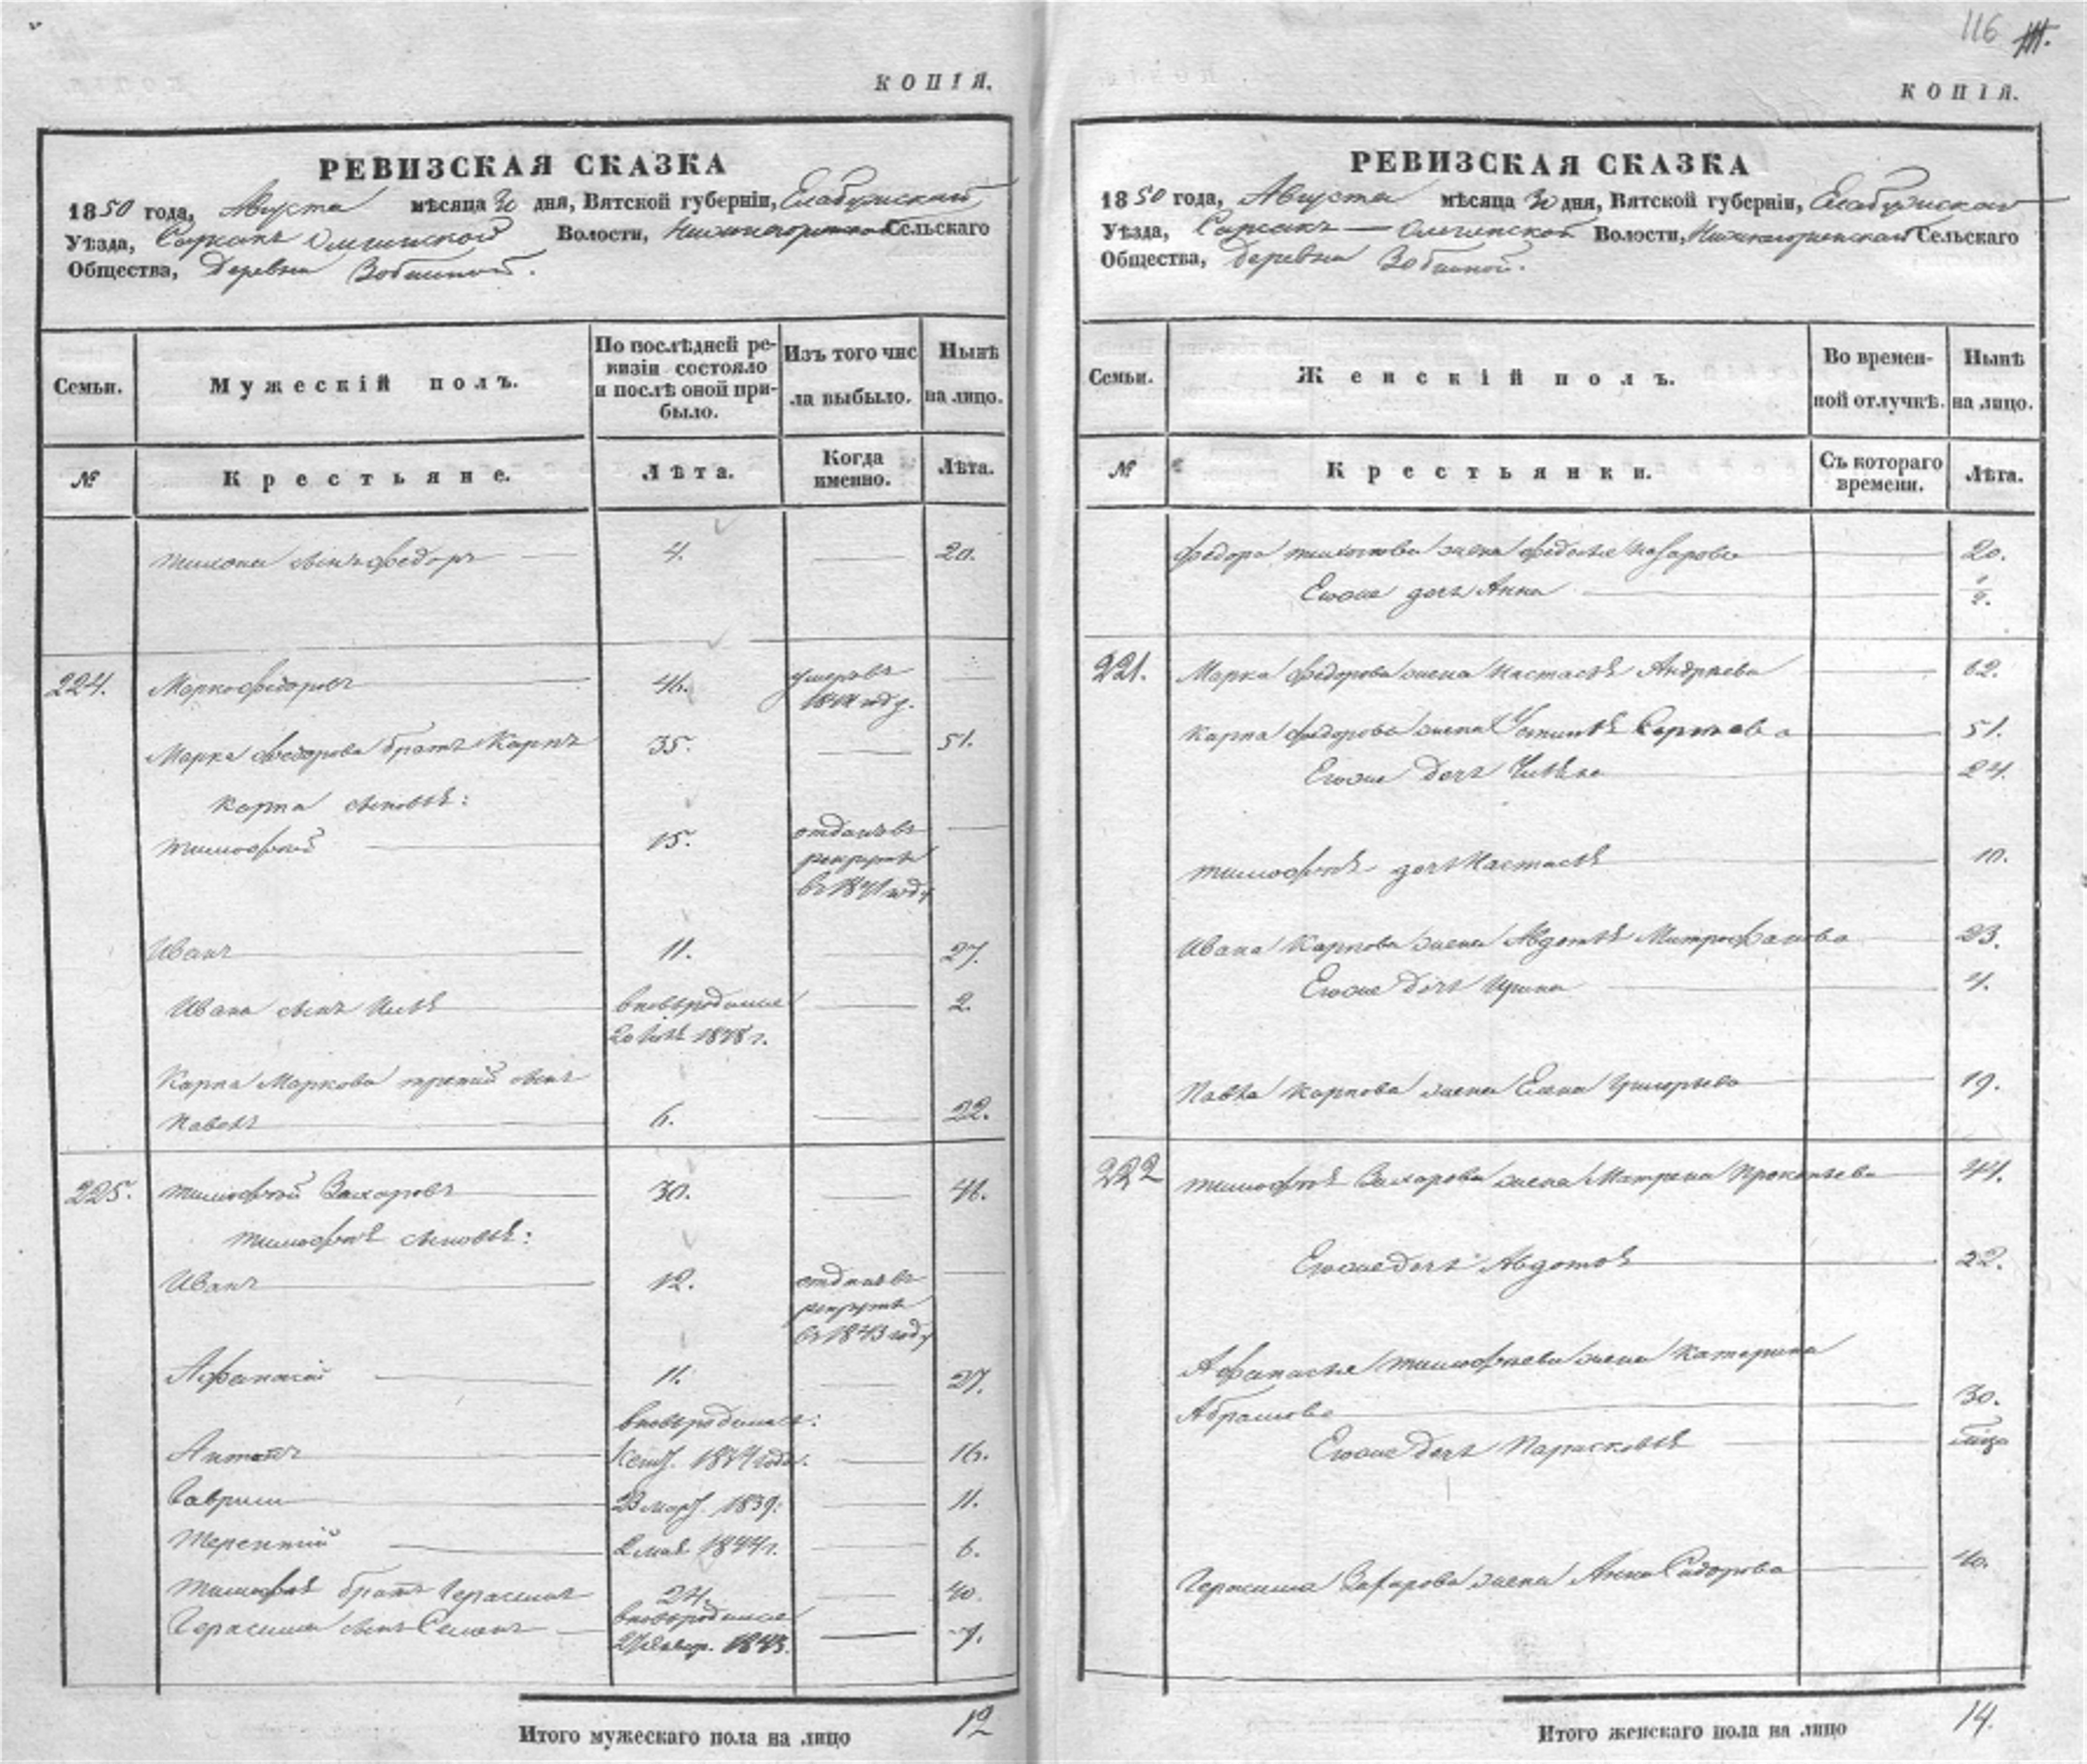 КОПІЯ.
РЕВИЗСКАЯ СКАЗКА
1850 года, Августа мѣсяца 30 дня, Вятской губерніи, Елабужской
Уѣзда, Волости, Сельскаго
Общества, Деревни
Семьи.
Мужескій полъ.
По послѣдней ре-
визіи состояло
и послѣ оной при-
было.
Изъ того чис
ла выбыло.
Нынѣ
на лицо.
№
Крестьяне.
Лѣта.
Когда
именно.
Лѣта.
сынъ Федоръ 4. 20.
224. Марко Федоровъ 46. умеръ въ
году.
Марка Федорова братъ Карпъ 35. 51.
Карпа сыновьѣ:
Тимофей 15. отданъ въ
рекруты
въ 1841 году
Иванъ 11. 27.
Ивана сынъ вновьродился 2.
1848 г.
Карпа Маркова третий сынъ
Павелъ 6. 22.
225. Тимофей Захаровъ 30. 46.
Тимофѣѣ сыновьѣ:
Иванъ 12. отданъ въ
рекруты
въ 1843 году
Афанасий 11. 27.
вновьродились:
Антонъ 1834 года. 16.
Гаврила 23 мар. 1839. 11.
Терентий 2 мая 1844 г. 6.
Тимофѣѣ братъ Герасимъ 24. 40.
Герасима сынъ Семенъ вновьродился 7.
1843.
Итого мужескаго пола на лицо 12
116
КОПІЯ.
РЕВИЗСКАЯ СКАЗКА
1850 года, Августа мѣсяца 30 дня, Вятской губерніи, Елабужской
Уѣзда, Волости, Сельскаго
Общества, Деревни
Семьи.
Женскій полъ.
Во времен-
ной отлучкѣ.
Нынѣ
на лицо.
№
Крестьянки.
Съ котораго
времени.
Лѣта.
Федора жена 20.
Егоже дочь Анна 1/2.
221. Марка Федорова жена Настасьѣ Андрѣева 62.
Карпа Федорова жена Сергѣева 51.
Егоже дочь 24.
Тимофѣѣ дочь Настасьѣ 10.
Ивана Карпова жена Авдотьѣ Митрофанова 23.
Егоже дочь Ирина 4.
Павла Карпова жена Елена Григорьева 19.
222 Тимофѣѣ Захарова жена Матрена Прокопьева 44.
Егоже дочь Авдотьѣ 22.
Афанасья Тимофѣева жена Катерина
Абрамова 30.
Егоже дочь Парасковьѣ
Герасима Захарова жена Анна Сидорова 40.
Итого женскаго пола на лицо 14.